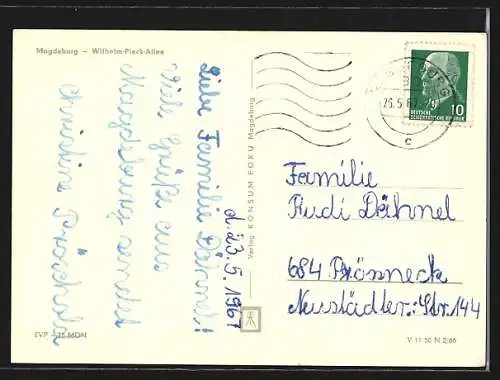 Magdeburg – Wilhelm-Pieck-Allee
d. 23.5.1967
Liebe Familie Dähnel!
Viele Grüße aus
Magdeburg sendet
Christine
Verlag KONSUM FOKU Magdeburg
DEUTSCHE
DEMOKRATISCHE REPUBLIK
10
c
Familie
Rudi Dähnel
684 Pössneck
Neustädter-Str. 144
EVP MDN
V 11 50 N 2/66